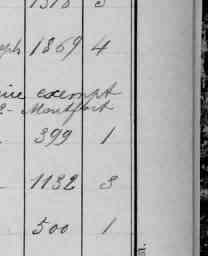 1318 3
eph 1869 4
exempt
2- Montfort
399 1
1132 3
500 1